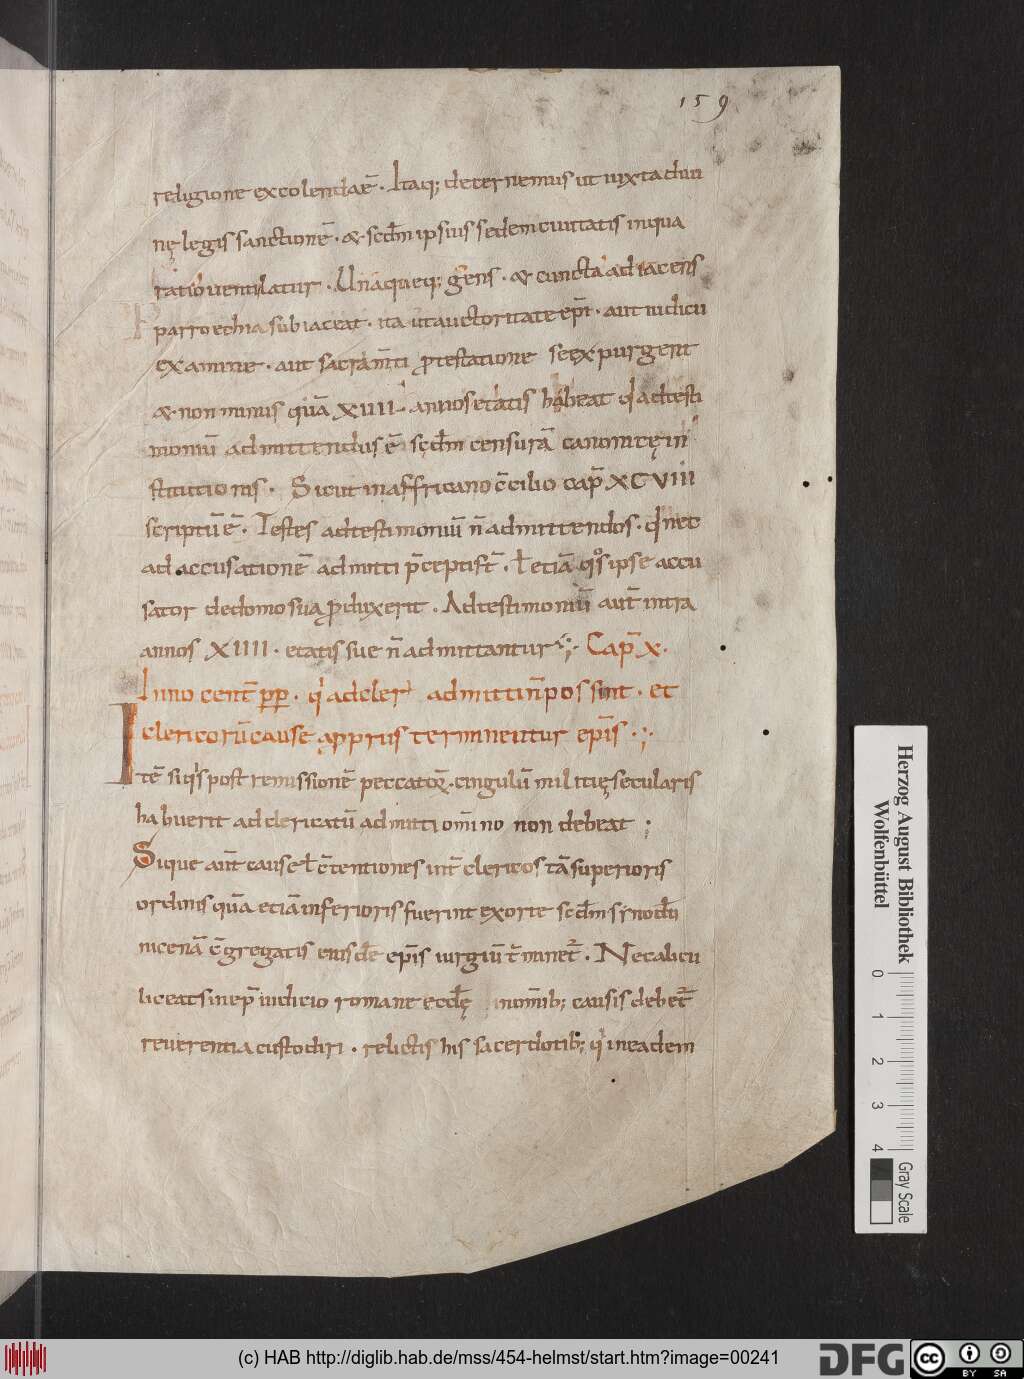 159
religione excolendaē. Itaq; decernemus ut iuxta diui
nę legis sanctionē. & scd̄m ipsius sedem ciuitatis in qua
ratio uentilatur. Unaqueq; gens. & cuncta adiacens
parroechia subiaceat. ita ut auctoritate ep̄i. aut iudicii
examine. aut sacram̄ti p̄testatione se expurgent
& non minus quā XIIII annos etatis habeat qd ad testi
moniū admittendus ē scd̄m censurā canonicę in
stitutionis. Sicut in affricano c̄cilio cap̄ XCVIII
scriptū ē. Testes ad testimoniū n̄ admittendos. qd nec
ad accusationē admitti p̄cepit st̄. ł etiā qos ipse accu
sator de domo sua p̄duxerit. Ad testimoniū aut̄ intra
annos XIIII. etatis sue n̄ admittantur. Cap̄ X.
Innocent̄ pp. qd ad cler̄ admitti n̄ possint. et
clericorū cause a p̄priis terminentur ep̄is.
Itē siqis post remissionē peccatoꝝ. cingulū militię secularis
habuerit ad clericatū admitti om̄ino non debeat;
Sique aut̄ cause ł c̄tentiones int̄ clericos tā superioris
ordinis quā etiā inferioris fuerint exorte scd̄m synodū
nicenā c̄gregatis eiusdē ep̄is iurgiū t̄minet̄. Nec alicui
liceat sine p̄iudicio romane eccłę in om̄ib; causis debet̄
reuerentia custodiri. relictis his sacerdotib; qi in eadem
Herzog August Bibliothek
Wolfenbüttel
0 1 2 3 4
Gray Scale
(c) HAB http://diglib.hab.de/mss/454-helmst/start.htm?image=00241
DFG
cc BY SA